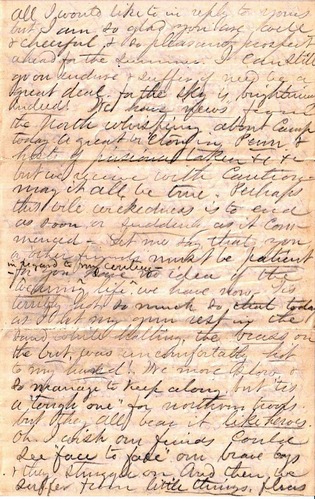 all I would like to in reply to yours
but I am so glad you are well
& cheerful & so pleasant prospect
ahead for the summer. I can still
go on endure & suffer if need be a
great deal, for the sky is brightening
indeed! We have news from
the North whispering about Camp
today a great victory in Penn &
hosts of prisoners taken &c &c
but we receive with caution
may it all be true. Perhaps
this vile wickedness is to end
as soon or suddenly as it com
menced – Let me say that you
& other friends must be patient
in regard to my
for you have no idea of the
life we have now. Tis
terribly hot so much so that today
as I let my open rest in the
sand while the
the but, was uncomfortably hot
to my hand! We move slow &
so manage to keep along, but 'tis
a "tough one" for northern troops
but they all bear it like heroes
Oh I wish our friends could
see face to face our brave boys
& they struggle on And then we
suffer from little things, fleas